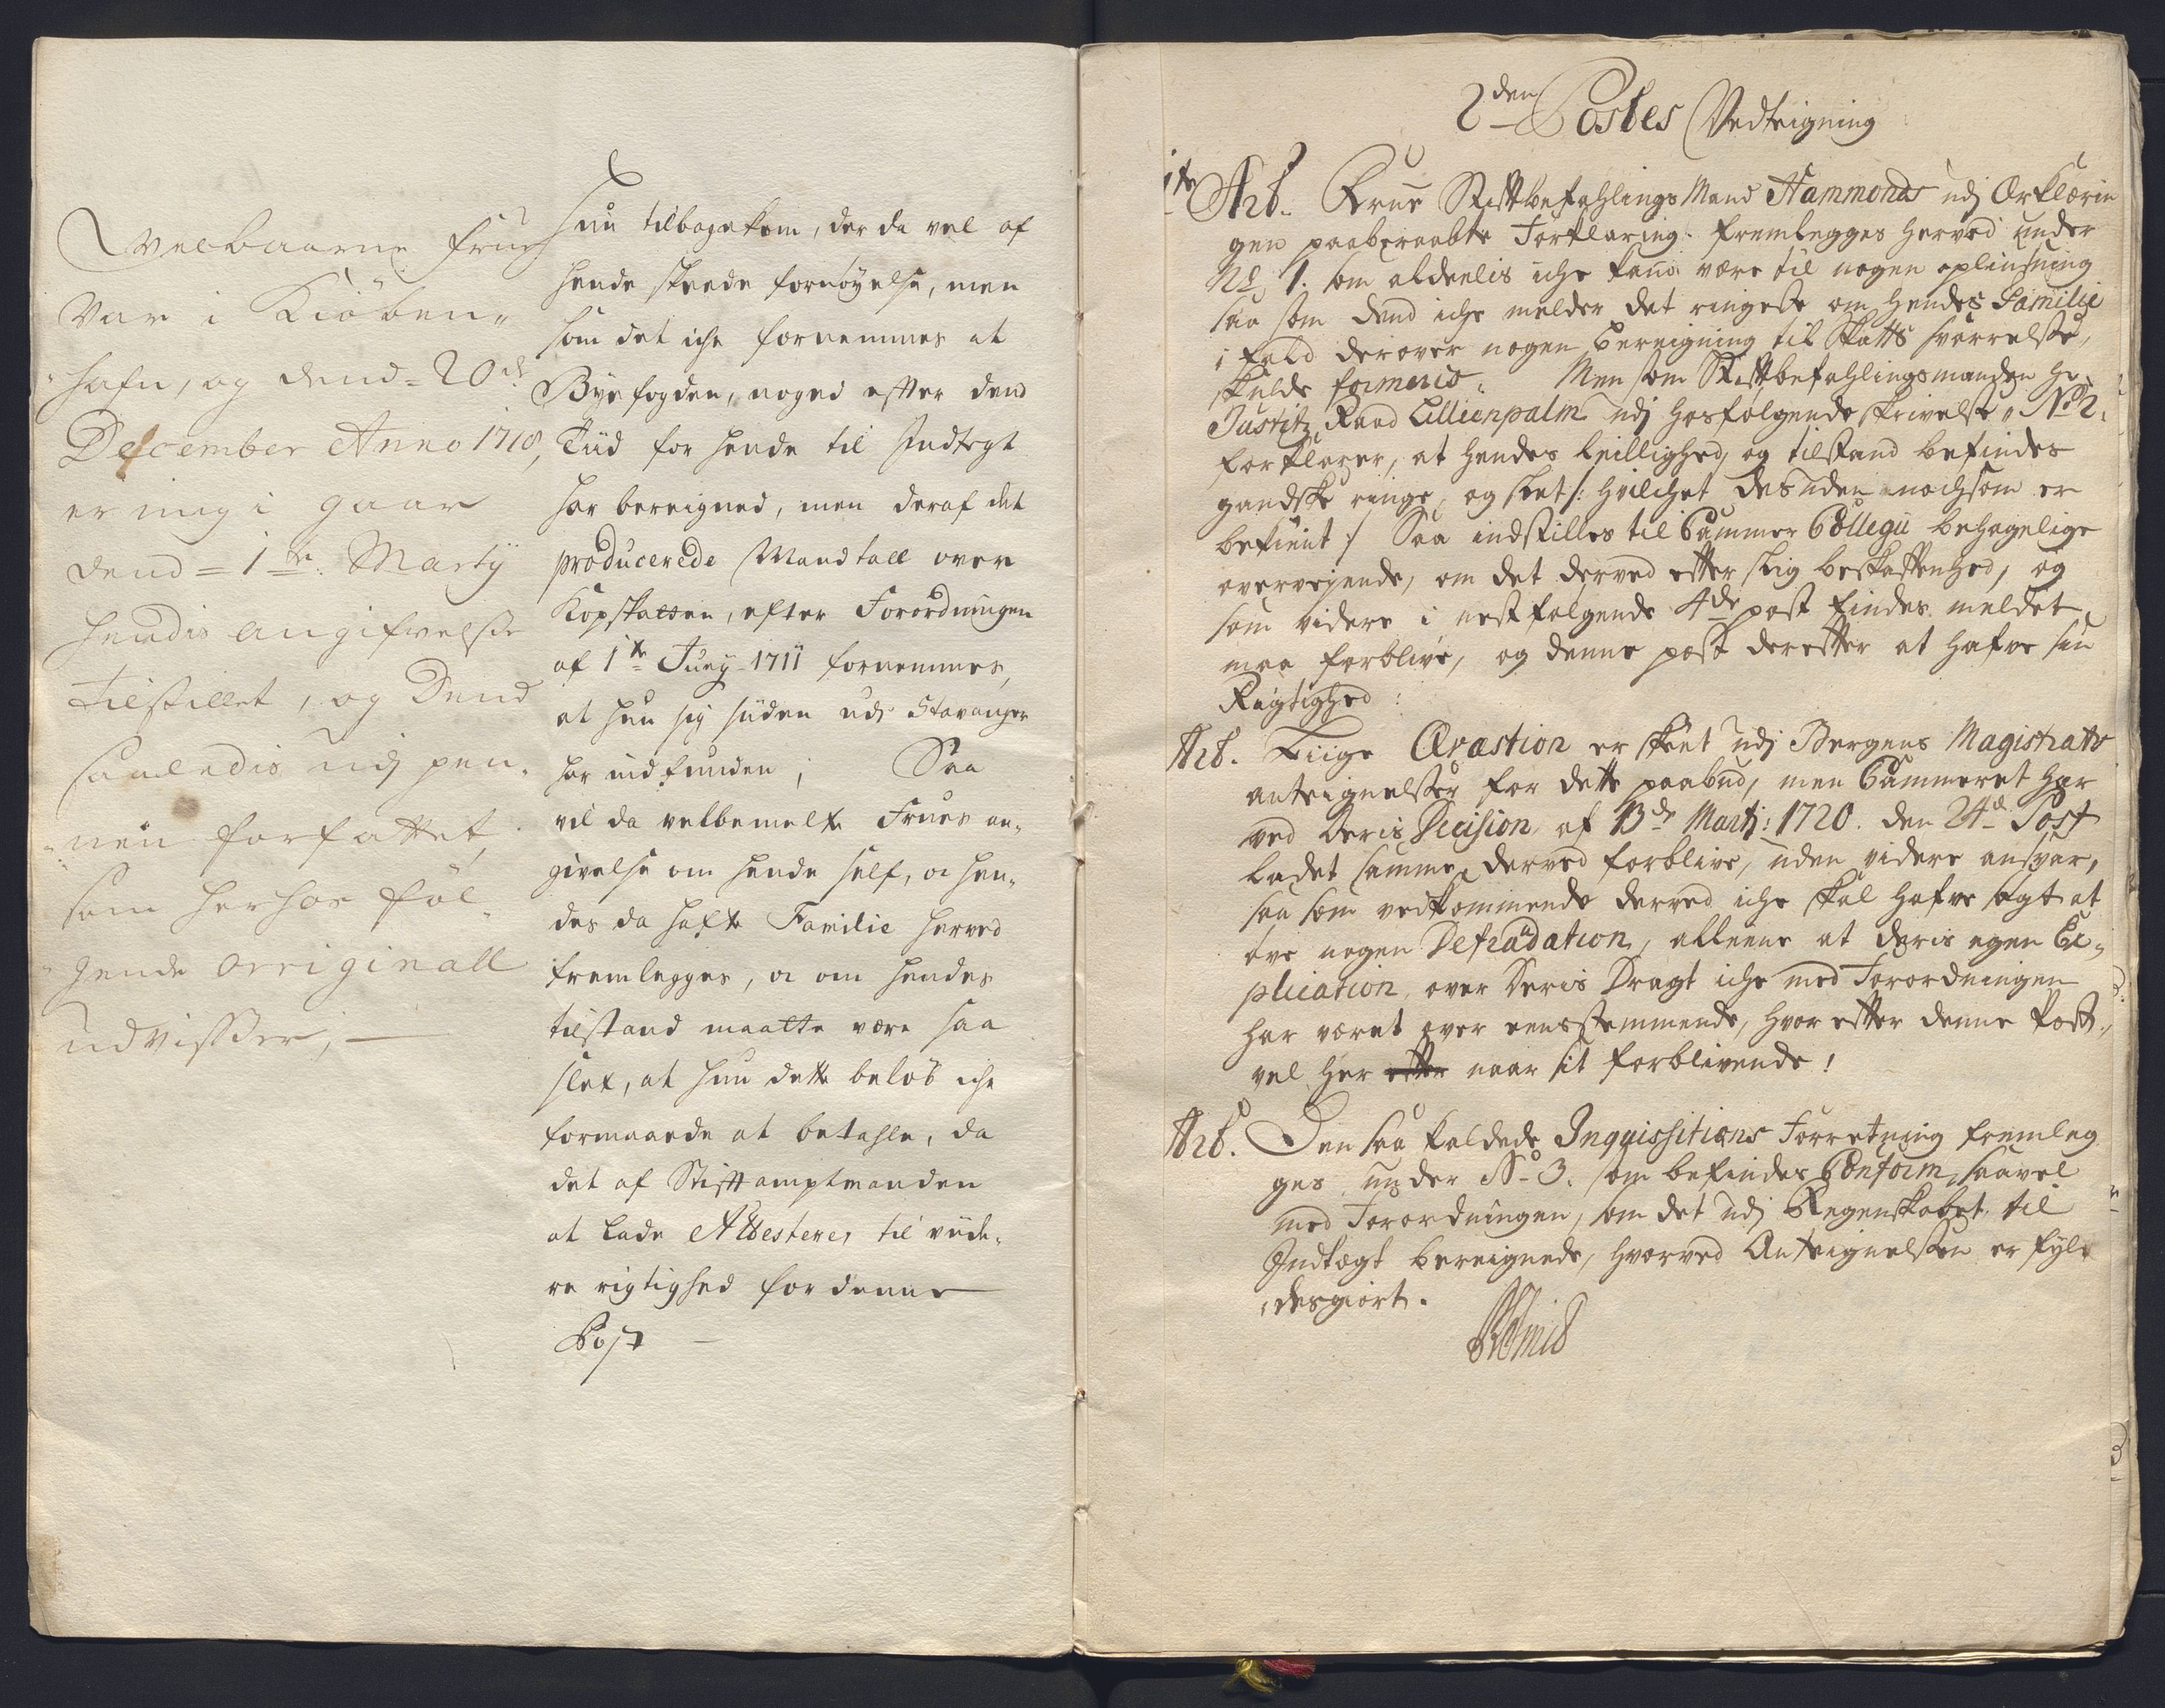 Welbaarne Frue
var i Kiöben„
hafn, og dend 20de
December Anno 1718,
er mig i gaar
dend 1te Marty
hendis angifvelsse
tilstillet, og Dend
saaledis udj pen„
nen forfattet,
som herhos föl„
gende orriginall
udvisser,
hun tilbagekom, der da vel af
hende skeede fornöyelse, men
som det iche fornemmes at
Byefogden, noged efter dend
Tiid for hende til Indtegt
har bereigned, men deraf det
producerede Mandtall over
Kopskatten, efter Forordningen
af 1te Juny 1711 fornemmes,
at hun sig siiden udi Stavanger
har indfunden; Saa
vil da velbemelte Frues an„
givelse om hende self, oc hen„
des da hafte Familie herved
fremlegges, oc om hendes
tilstand maatte være saa
slet, at hun dette beløb iche
formaaede at betahle, da
det af Stiftamptmanden
at lade Attestere, til viide„
re rigtighed for denne
Post
2den Postes Vedteigning
1te Art. Frue Stiftbefahlings Mand Hammonds udj Erklærin
gen paaberaabte Forklaring fremlegges herved under
No 1. som aldeelis iche kand være til nogen opliusning
saa som dend iche melder det ringeste om hendes Familie
i fald derover nogen bereigning til Skatts svarrelse,
skulde formeris. Men som Stiftbefahlingsmanden Hr
Justitz Raad Lillienpalm udj hosfølgende skrivelse No 2.
forklarer, at hendes leillighed, og tilstand befindes
gandske ringe, og slet /: hvilchet desuden nochsom er
bekient :/ Saa indstilles til Cammer Collegii behagelige
overvejende, om det derved efter slig beskaffenhed, og
som videre i nestfølgende 4de post findes meldet
maa forblive, og denne post derefter at hafve sin
Rigtighed:
Art. Liige Qvæstion er skeet udj Bergens Magistrats
anteignelsser for dette paabud, men Cammeret har
ved deris Decision af 13de Martj: 1720. den 24de Post
ladet samme derved forblive, uden videre ansvar,
saa som vedkommende derved iche skal hafve søgt at
øve nogen Defraudation, alleene at deris egen Ex„
plication over deris Dragt iche med Forordningen
har været over eensstemmende, hvor efter denne Post
vel her efter naar sit forblivende!
Art. Den saa kaldede Inqvisitions Forretning fremleg
ges under No 3. som befindes Conform, saavel
med Forordningen, som det udj Regenskabet til
Indtægt bereignede, hvorved Anteignelssen er fyl„
destgiort.